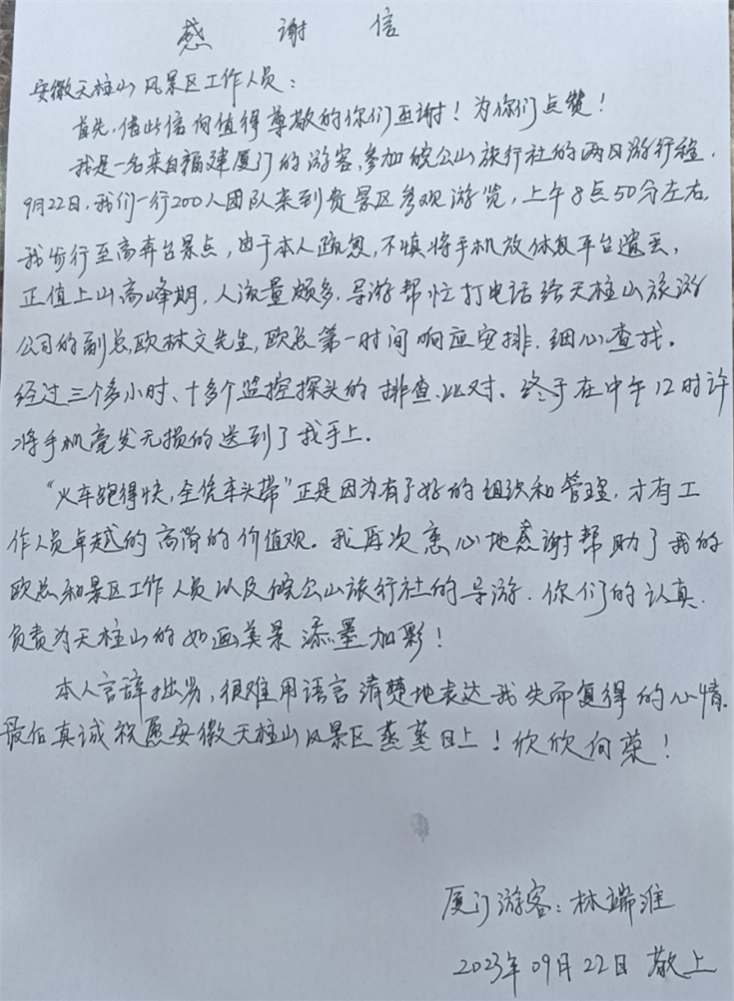 感谢信
安徽天柱山风景区工作人员:
首先,借此信向值得尊敬的你们至谢!为你们点赞!
我是一名来自福建厦门的游客,参加皖公山旅行社的两日游行程.
9月22日,我们一行200人团队来到贵景区参观游览,上午8点50分左右,
我步行至高奔台景点,由于本人疏忽,不慎将手机放休息平台遗丢,
正值上山高峰期,人流量颇多,导游帮忙打电话给天柱山旅游
公司的副总欧林文先生,欧总第一时间响应安排、细心查找。
经过三个多小时、十多个监控探头的排查、比对、终于在中午12时许
将手机毫发无损的送到了我手上。
“火车跑得快,全凭车头带”正是因为有了好的组织和管理,才有工
作人员卓越的高尚的价值观。我再次衷心地感谢帮助了我的
欧总和景区工作人员以及皖公山旅行社的导游.你们的认真、
负责为天柱山的如画美景添墨加彩!
本人言辞拙劣,很难用语言清楚地表达我失而复得的心情.
最后真诚祝愿安徽天柱山风景区蒸蒸日上!欣欣向荣!
厦门游客:林端淮
2023年09月22日 敬上